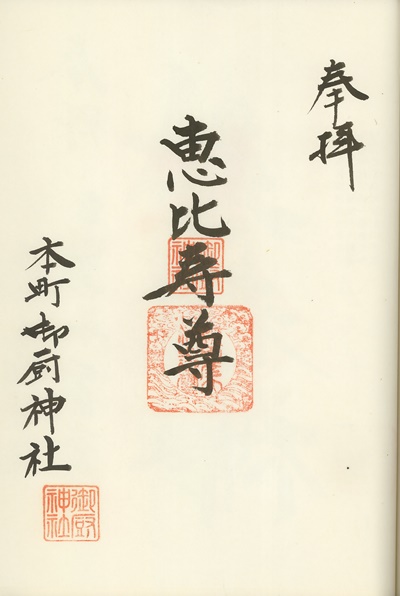 奉拝
恵比寿尊
本町御厨神社
御厨
神社